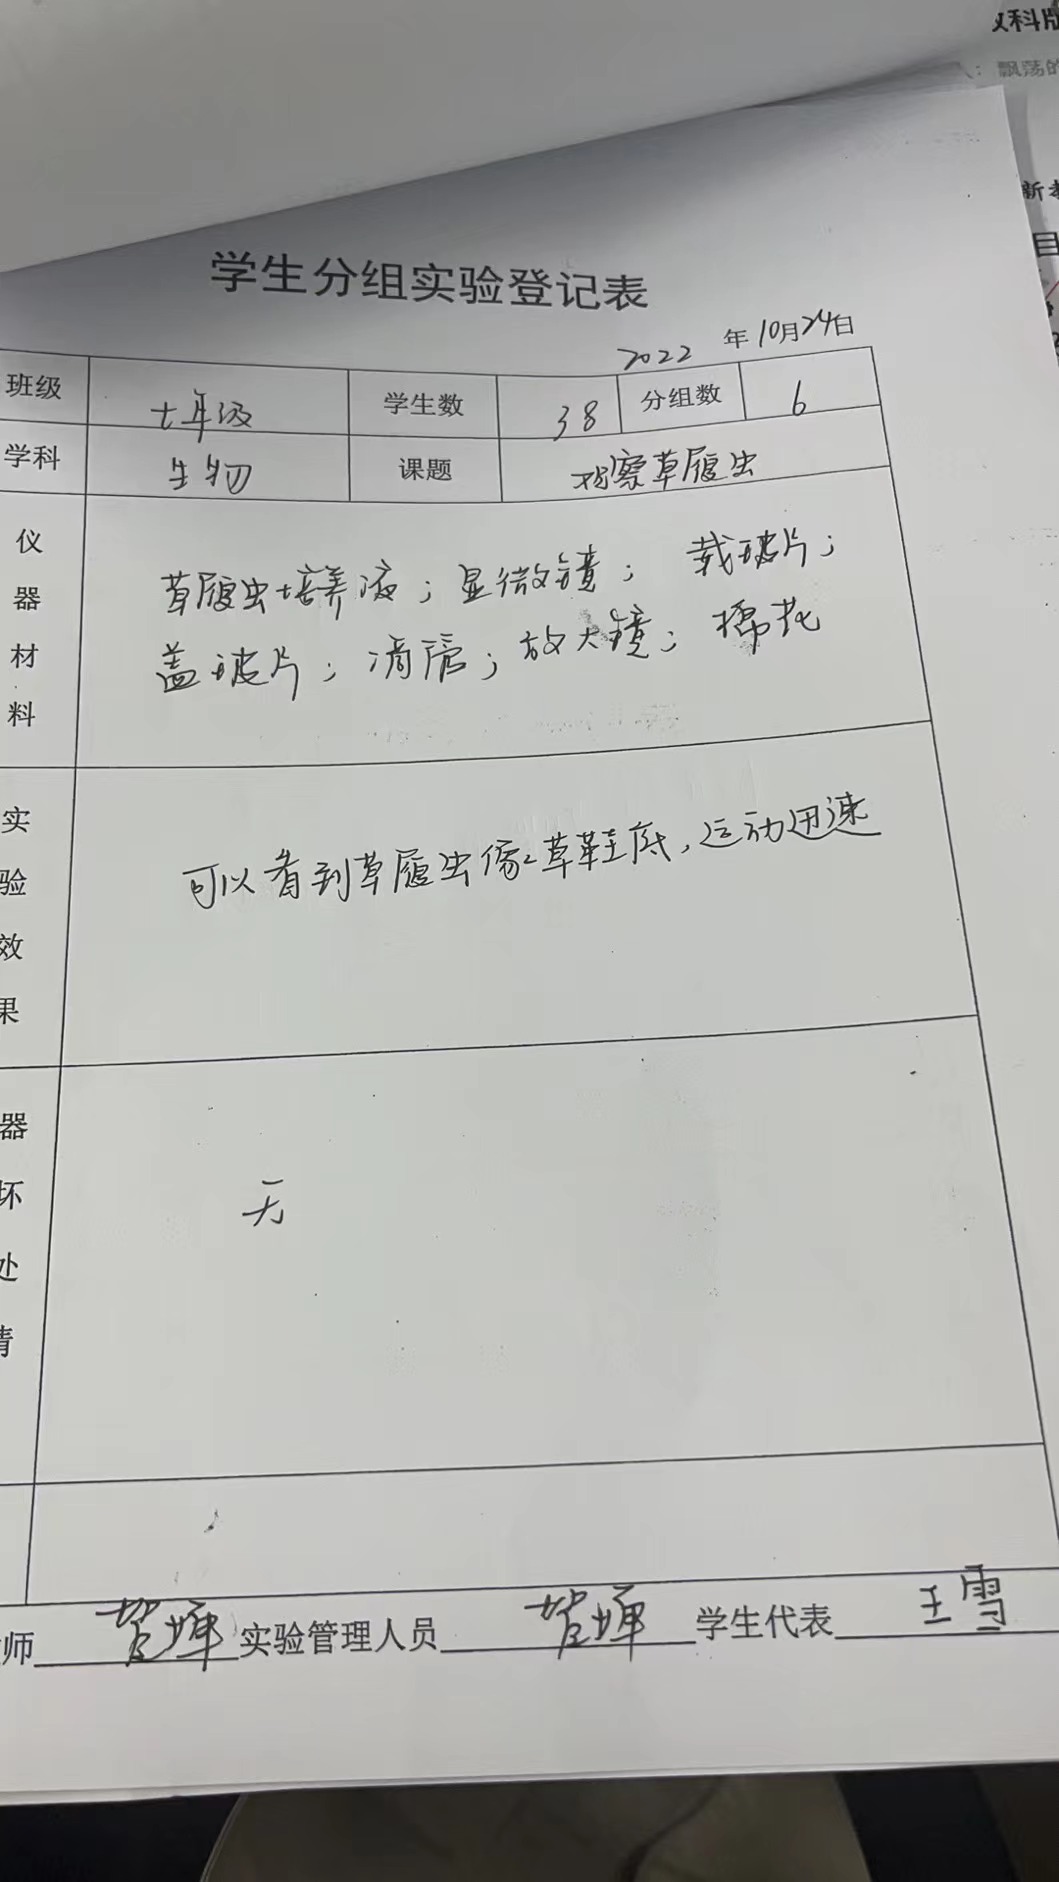 教科版
：飘荡的
新教
目
学生分组实验登记表
2022年10月24日
班级 七年级 学生数 38 分组数 6
学科 生物 课题 观察草履虫
仪器材料
草履虫培养液；显微镜；载玻片；
盖玻片；滴管；放大镜；棉花
实验效果
可以看到草履虫像草鞋底，运动迅速
器坏处情
无
师 实验管理人员 学生代表 王雪